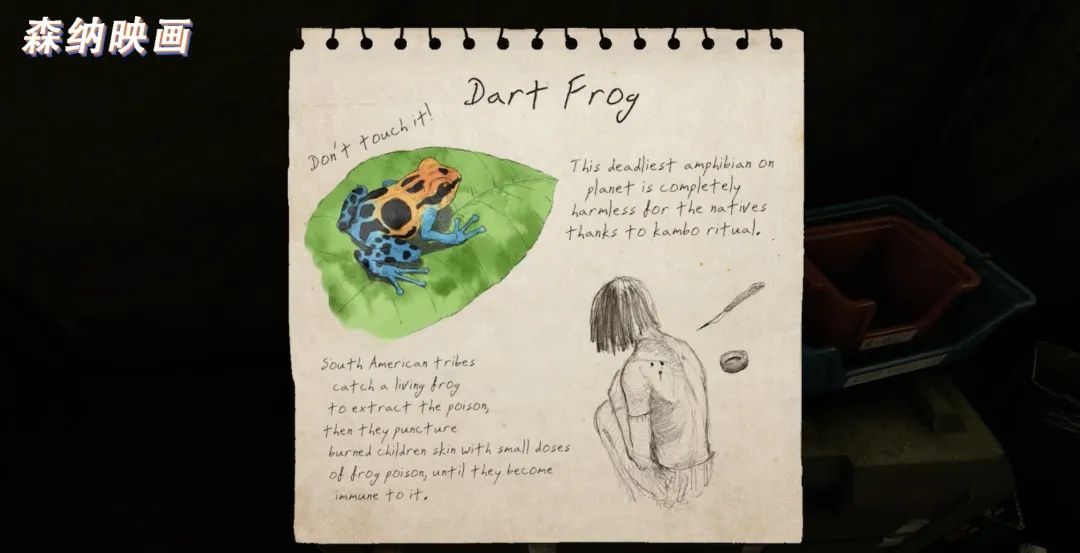 森纳映画
Dart Frog
Don't touch it!
This deadliest amphibian on
planet is completely
harmless for the natives
thanks to kambo ritual.
South American tribes
catch a living frog
to extract the poison,
then they puncture
burned children skin with small doses
of frog poison, until they become
immune to it.